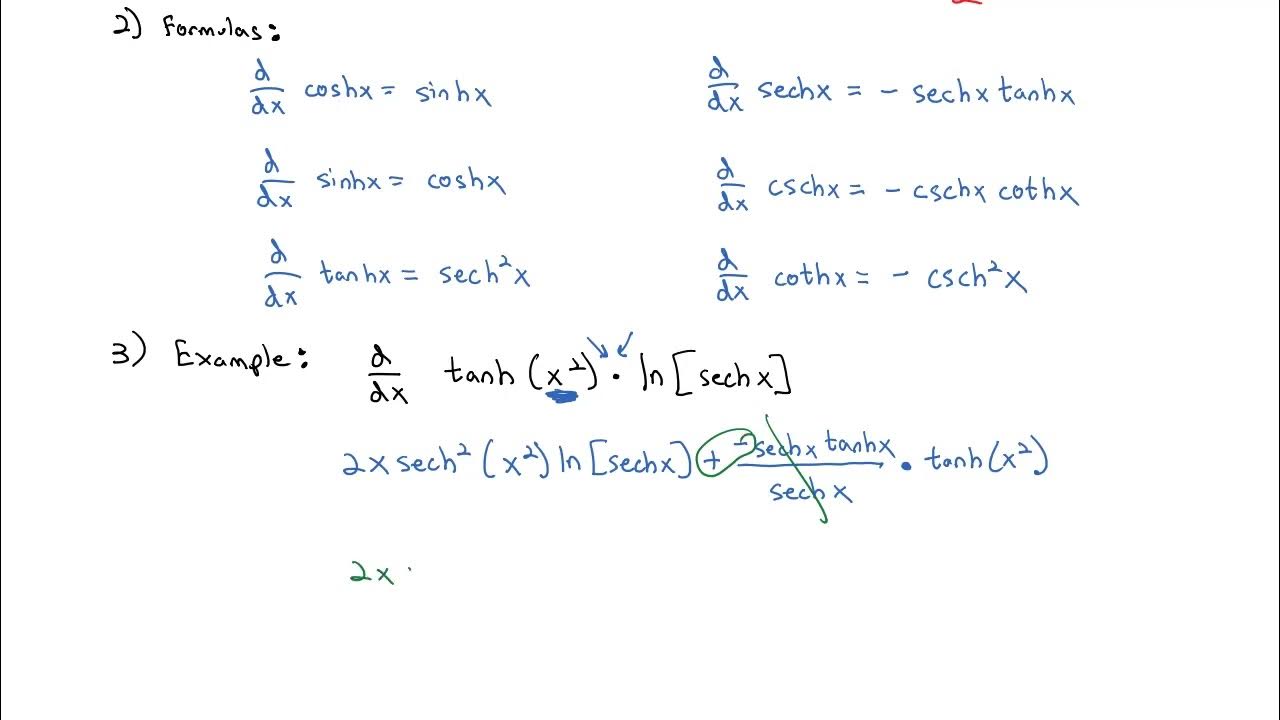 2) Formulas:
d/dx coshx = sinhx
d/dx sechx = - sechx tanhx
d/dx sinhx = coshx
d/dx cschx = - cschx cothx
d/dx tanhx = sech²x
d/dx cothx = - csch²x
3) Example: d/dx tanh (x²) · ln [sechx]
2x sech² (x²) ln [sechx] + -sechx tanhx / sechx · tanh(x²)
2x ·